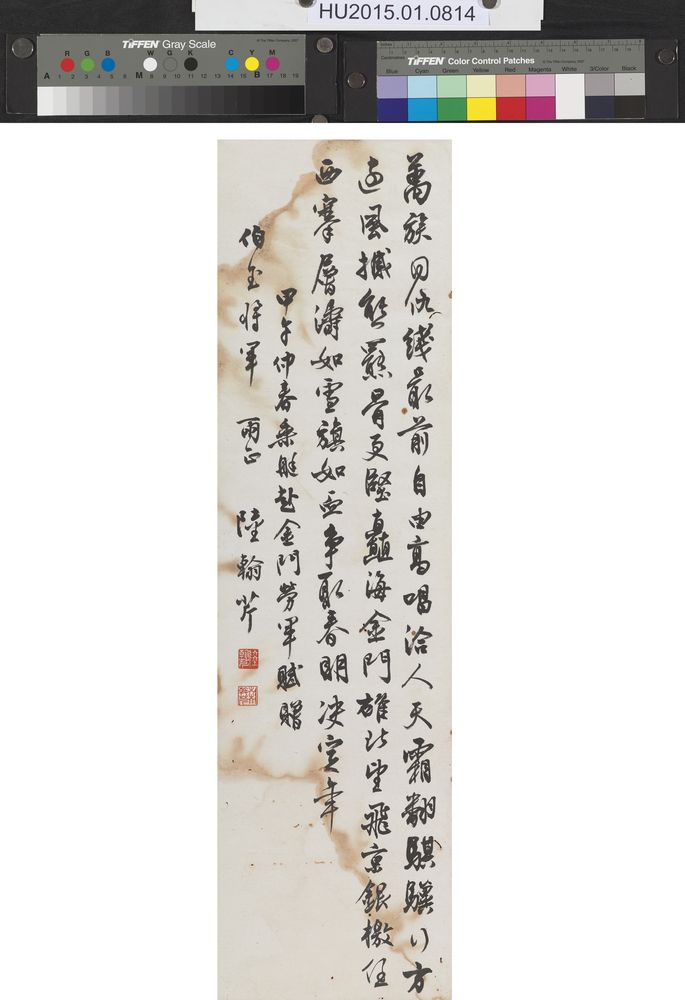 HU2015.01.0814
TIFFEN Gray Scale
R G B W G K C Y M
A 1 2 3 4 5 6 M 8 9 10 11 12 13 14 15 B 17 18 19
TIFFEN Color Control Patches
Blue Cyan Green Yellow Red Magenta White 3/Color Black
萬族同仇綫最前自由高唱洽人天霜翻騏驥行方
風撼熊羆骨更堅矗海金門雄北望飛京銀檄任
西搴層濤如雪旗如血爭取春明決定年
甲午仲春乘艇赴金門勞軍賦贈
伯玉將軍 雨正 陸翰芹